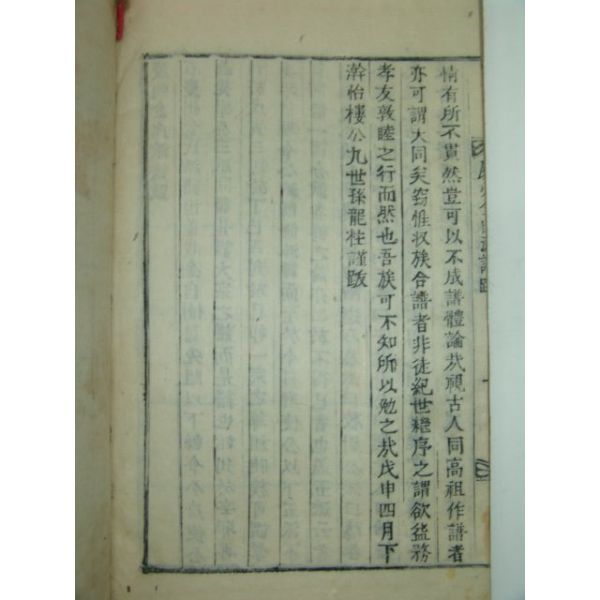 情有所不貫然豈可以不成譜體論㢤視古人同高祖作譜者
亦可謂大同矣窃惟收族合譜者非徒紀世継序之謂欲益務
孝友敦睦之行而然也吾族可不知所以勉之㢤戊申四月下
澣怡樓公九世孫龍柱謹跋